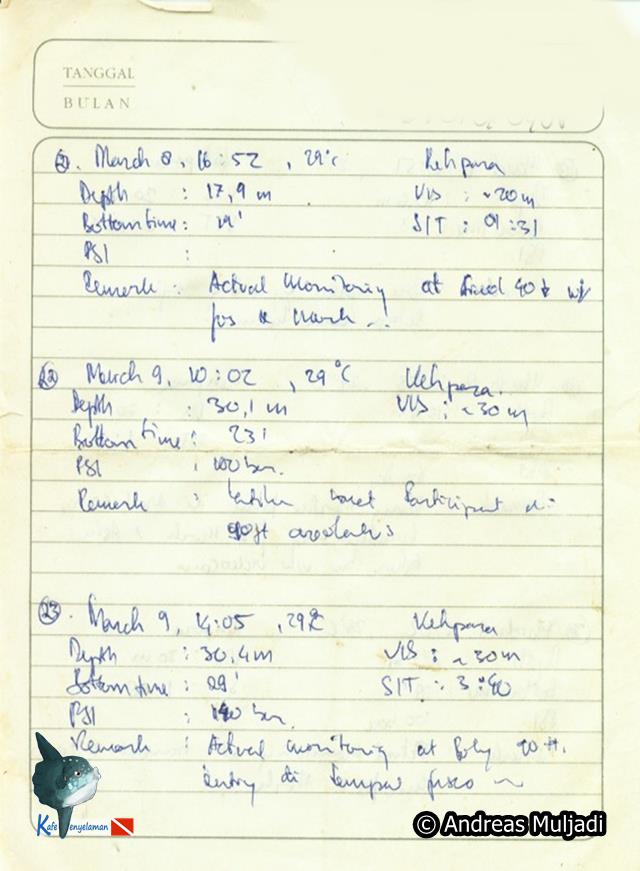 TANGGAL
BULAN
March 8, 16:52, 29°C Kehpara
Depth : 17,9 m VIS : ~20m
Bottom time : SIT : 01:31
PSI :
Remark : Actual Monitoring at
March
22 March 9, 10:02, 29°C Kehpara.
Depth : 30,1 m VIS : ~30m
Bottom time : 23'
PSI : 100 bar.
Remark : Participant di
23. March 9, 14:05, 29°C Kehpara
Depth : 30,4m VIS : ~30m
Bottom time : 29' SIT : 3:40
PSI : 140 bar.
Remark : Actual monitoring at 90 ft.
Entry di
Kafe Penyelaman
© Andreas Muljadi